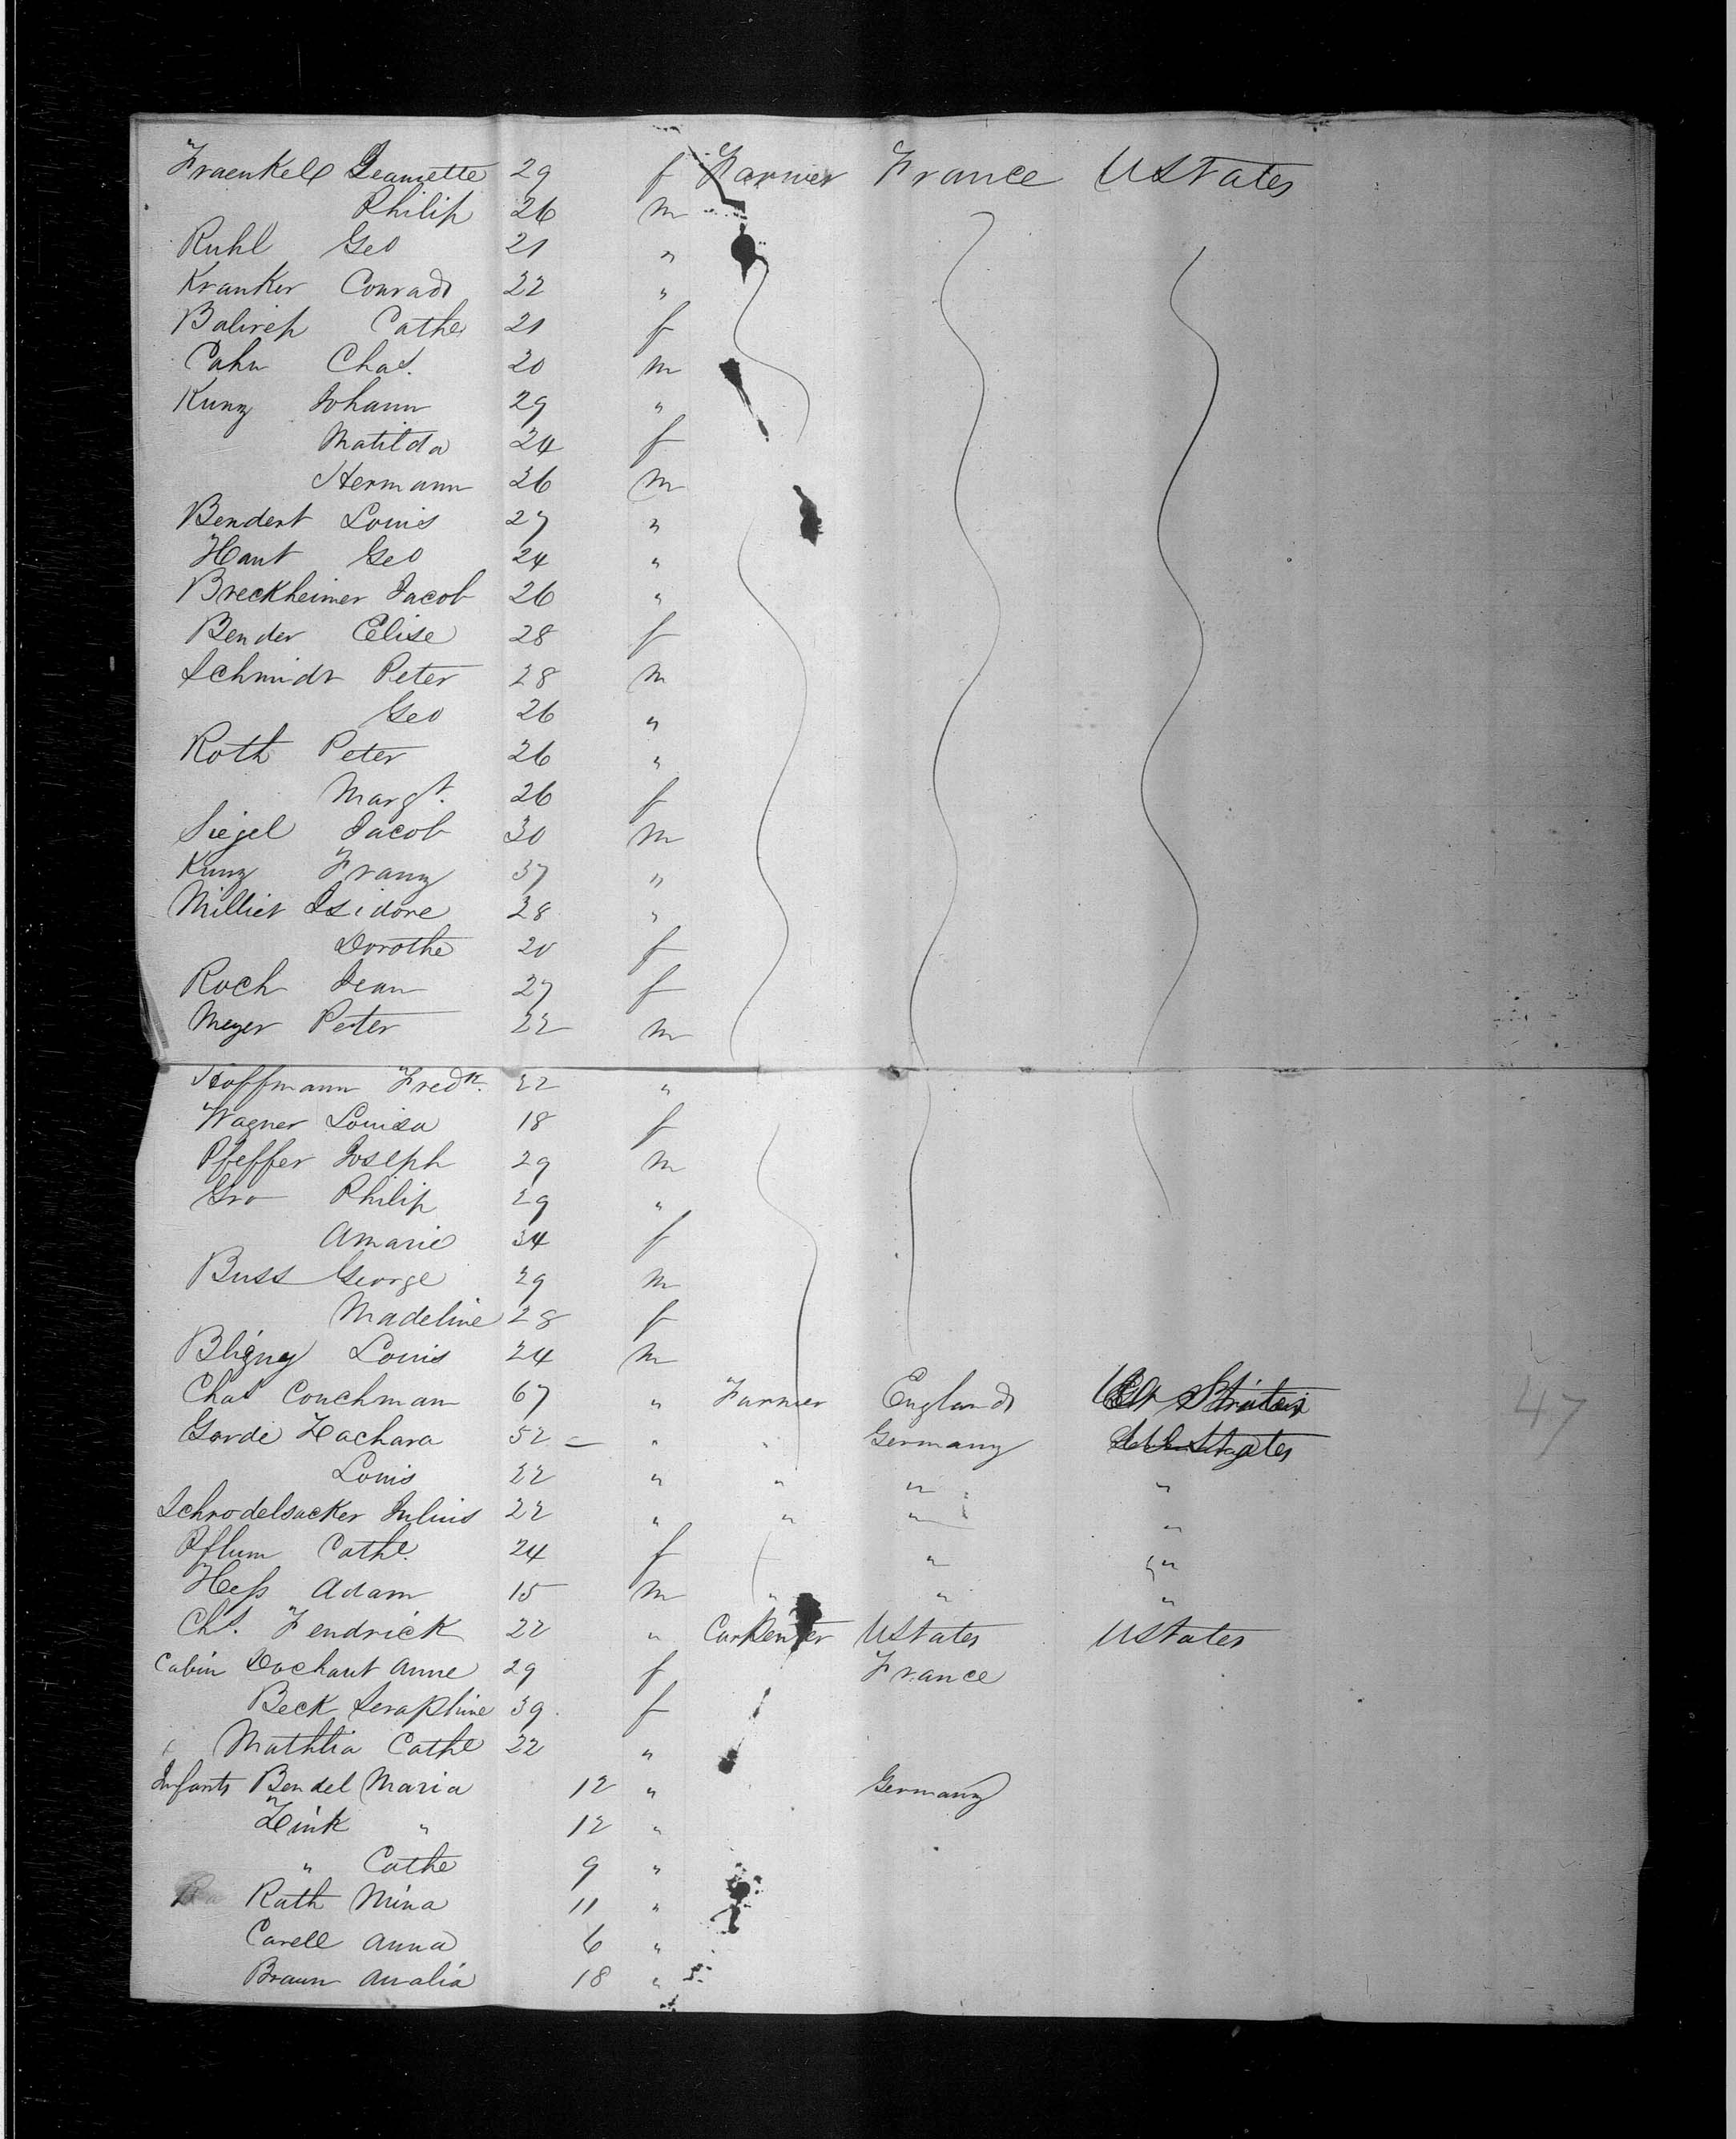 Fraenkel Jeanette 29 f Farmer France UStates
Philip 26 m
Ruhl Geo 21 "
Kranker Conrad 22 "
Cathe 21 f
Cahn Chas. 20 m
Kunz Johann 29 "
Matilda 24 f
Hermann 26 m
Bendert Louis 27 "
Haut Geo 24 "
Breckheimer Jacob 26 "
Bender Elise 28 f
Schmidt Peter 28 m
Geo 26 "
Roth Peter 26 "
Margt. 26 f
Siegel Jacob 30 m
Kunz Franz 37 "
Milliet Isidore 28 "
Dorothe 20 f
Roch Jean 27 f
Meyer Peter 22 m
Hoffmann Fredk. 22 "
Wagner Louisa 18 f
Pfeffer Joseph 29 m
Gro Philip 29 "
Amarie 34 f
Buss George 29 m
Madeline 28 f
Bligny Louis 24 m
Chas Couchman 67 " Farmer England
Gorde Zachara 52 " " Germany
Louis 22 " " " "
Schrodelsacker Julius 22 " " " "
Pflum Cathe. 24 f " "
Hess Adam 15 m " " "
Chs. Fendrick 22 " Carpenter UStates UStates
Cabin Dochaut Anne 29 f France
Beck Seraphine 39 f
Mathlia Cathe 22 "
Infants Bendel Maria 12 " Germany
Zink " 12 "
" Cathe 9 "
Rath Mina 11 "
Carell Anna 6 "
Braun Amalia 18 "
47